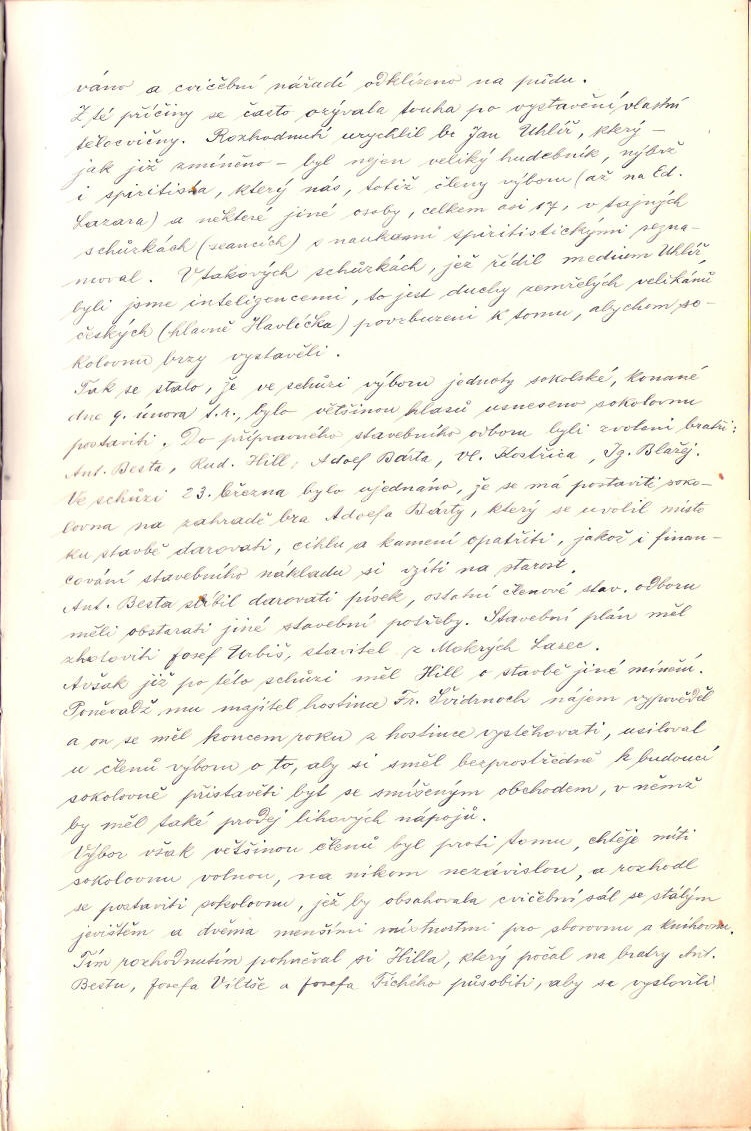 váno a cvičební nářadí odklizeno na půdu.
Z té příčiny se často ozývala touha po vystavění vlastní
tělocvičny. Rozhodnutí urychlil br Jan Uhlíř, který –
jak již zmíněno – byl nejen veliký hudebník, nýbrž
i spiritista, který nás, totiž členy výboru (až na Ed.
Lazara) a některé jiné osoby, celkem asi 17, v tajných
schůzkách (seancích) s naukami spiritistickými sezna-
moval. V takových schůzkách, jež řídil medium Uhlíř
byli jsme inteligencemi, to jest duchy zemřelých velikánů
českých (hlavně Havlíčka) povzbuzeni k tomu, abychom so-
kolovnu brzy vystavěli.
Tak se stalo, že ve schůzi výboru jednoty sokolské, konané
dne 9. února t.r., bylo většinou hlasů usneseno sokolovnu
postaviti. Do přípravného stavebního odboru byli zvoleni bratři:
Ant. Besta, Rud. Hill, Adolf Bárta, Vl. Kostřica, Ig. Blažej.
Ve schůzi 23. března bylo ujednáno, že se má postaviti soko-
lovna na zahradě bra Adolfa Bárty, který se uvolil místo
ku stavbě darovati, cihlu a kamení opatřiti, jakož i finan-
cování stavebního nákladu si vzíti na starost.
Ant. Besta slíbil darovati písek, ostatní členové stav. odboru
měli obstarati jiné stavební potřeby. Stavební plán měl
zhotoviti Josef Urbiš, stavitel z Mokrých Lazec.
Avšak již po této schůzi měl Hill o stavbě jiné mínění.
Poněvadž mu majitel hostince Fr. Švidrnoch nájem vypověděl
a on se měl koncem roku z hostince vystěhovati, usiloval
u členů výboru o to, aby si směl bezprostředně k budoucí
sokolovně přistavěti byt se smíšeným obchodem, v němž
by měl také prodej lihových nápojů.
Výbor však většinou členů byl proti tomu, chtěje míti
sokolovnu volnou, na nikom nezávislou, a rozhodl
se postaviti sokolovnu, jež by obsahovala cvičební sál se stálým
jevištěm a dvěma menšími místnostmi pro sborovnu a knihovnu.
Tím rozhodnutím pohněval si Hilla, který počal na bratry Ant.
Bestu, Josefa Viltše a Josefa Tichého působiti, aby se vyslovili